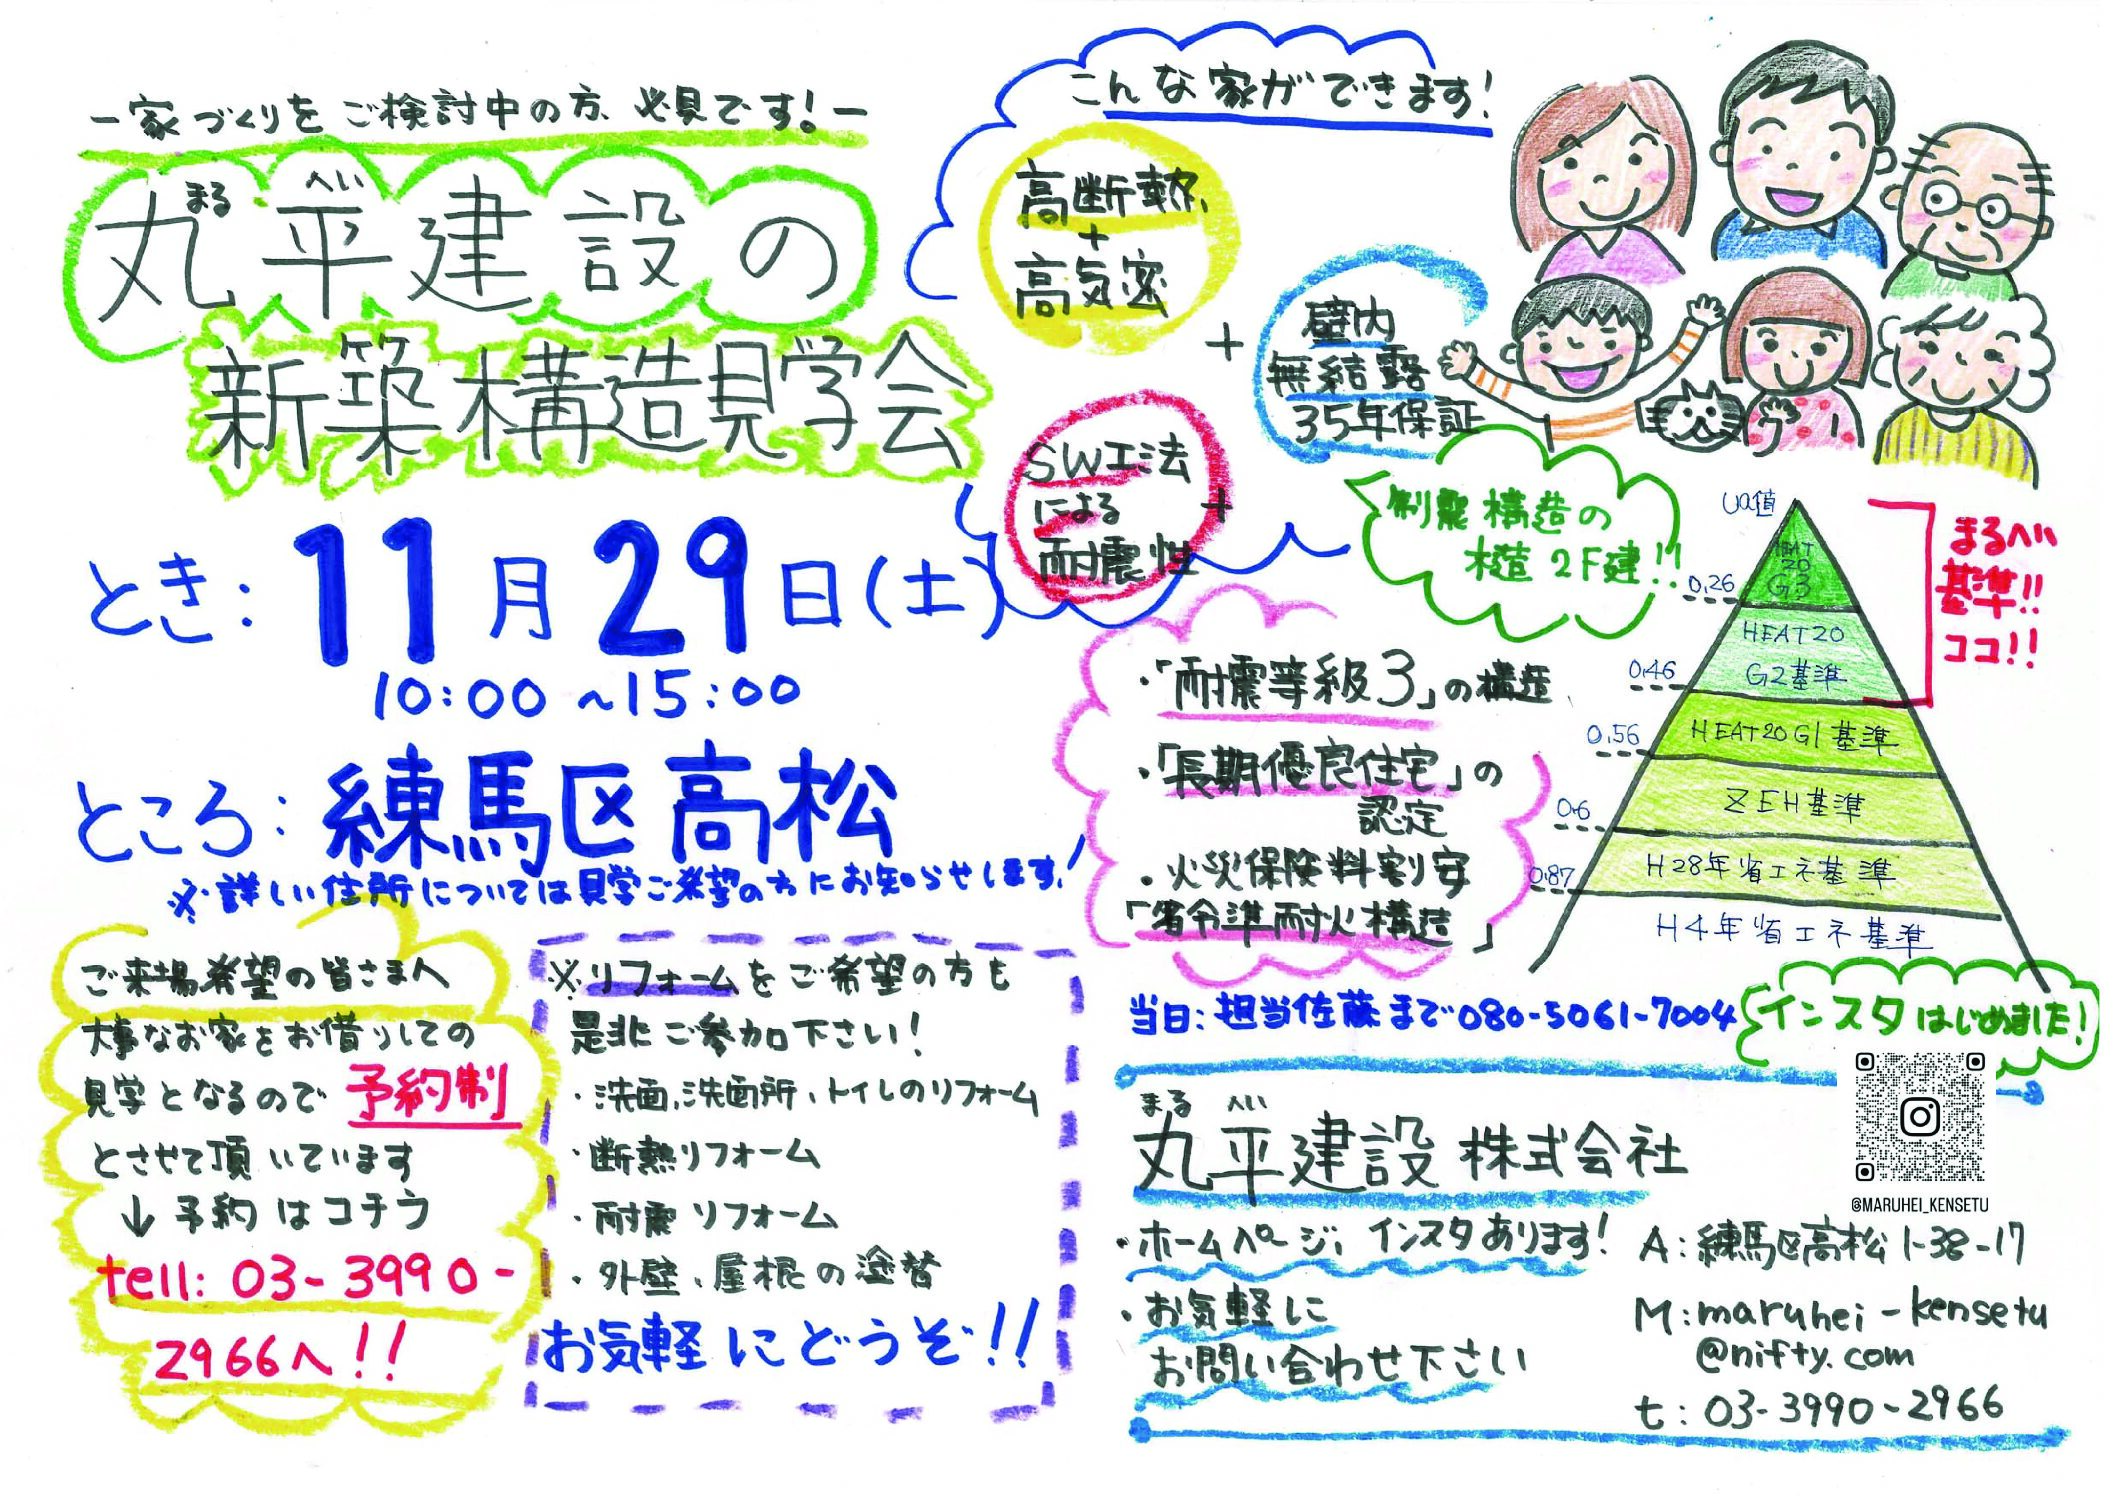 －家づくりをご検討中の方、必見です！－
まる へい
丸平建設の
新築構造見学会
とき：11月29日(土)
10:00～15:00
ところ：練馬区高松
※詳しい住所については見学ご希望の方にお知らせします！
ご来場希望の皆さまへ
大事なお家をお借りしての
見学となるので予約制
とさせて頂いています
↓予約はコチラ
tell: 03-3990-
2966へ！！
※リフォームをご希望の方も
是非ご参加下さい！
・洗面、洗面所、トイレのリフォーム
・断熱リフォーム
・耐震リフォーム
・外壁、屋根の塗替
お気軽にどうぞ！！
こんな家ができます！
高断熱
+
高気密
+
壁内
無結露
35年保証
+
SW工法
による
耐震性
制震構造の
木造2F建！！
・「耐震等級3」の構造
・「長期優良住宅」の
認定
・火災保険料割安
「省令準耐火構造」
Ua値
HEAT
20
G3
0.26
HEAT20
G2基準
0.46
HEAT20G1基準
0.56
ZEH基準
0.6
H28年省エネ基準
0.87
H4年省エネ基準
まるへい
基準！！
ココ！！
当日：担当佐藤まで080-5061-7004
インスタはじめました！
@MARUHEI_KENSETU
まる へい
丸平建設株式会社
・ホームページ、インスタあります！
・お気軽に
お問い合わせ下さい
A：練馬区高松1-38-17
M：maruhei-kensetu
@nifty.com
t：03-3990-2966